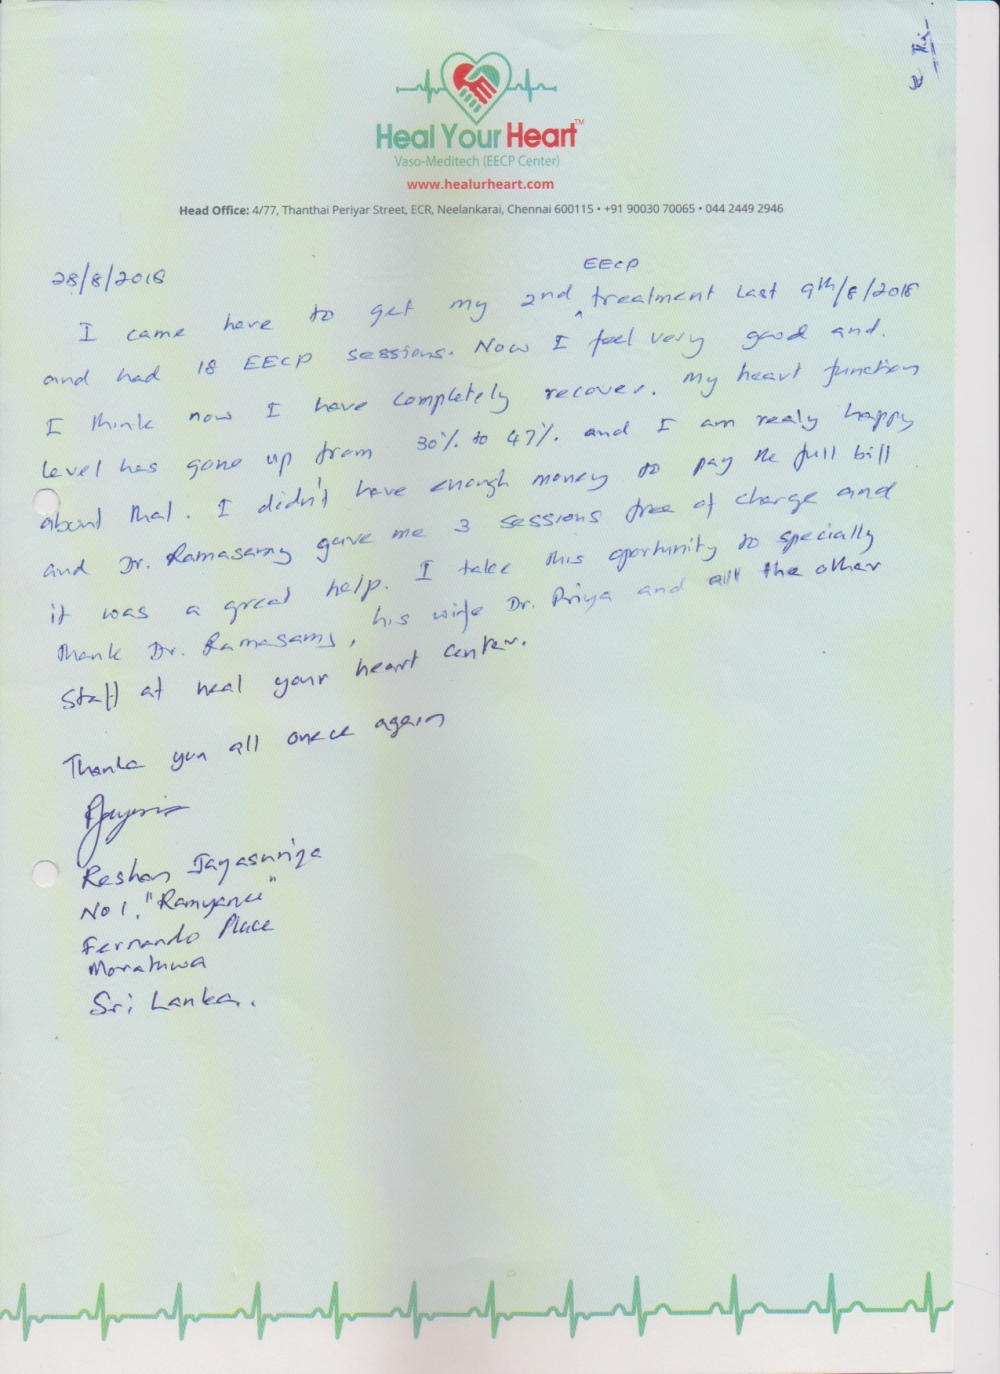 Heal Your Heart™
Vaso-Meditech (EECP Center)
www.healurheart.com
Head Office: 4/77, Thanthai Periyar Street, ECR, Neelankarai, Chennai 600115 • +91 90030 70065 • 044 2449 2946
28/8/2018
EECP
I came here to get my 2nd ^ treatment last 9th/8/2018
and had 18 EECP sessions. Now I feel very good and.
I think now I have completely recover. My heart function
level has gone up from 30% to 47%. and I am realy happy
about that. I didn't have enough money to pay the full bill
and Dr. Ramasamy gave me 3 sessions free of charge and
it was a great help. I take this oportunity to specially
thank Dr. Ramasamy, his wife Dr. Priya and all the other
staff at heal your heart center.
Thank you all onece again
Reshan Jayasuriya
No 1, "Ramyance"
Fernando Place
Moratuwa
Sri Lanka.